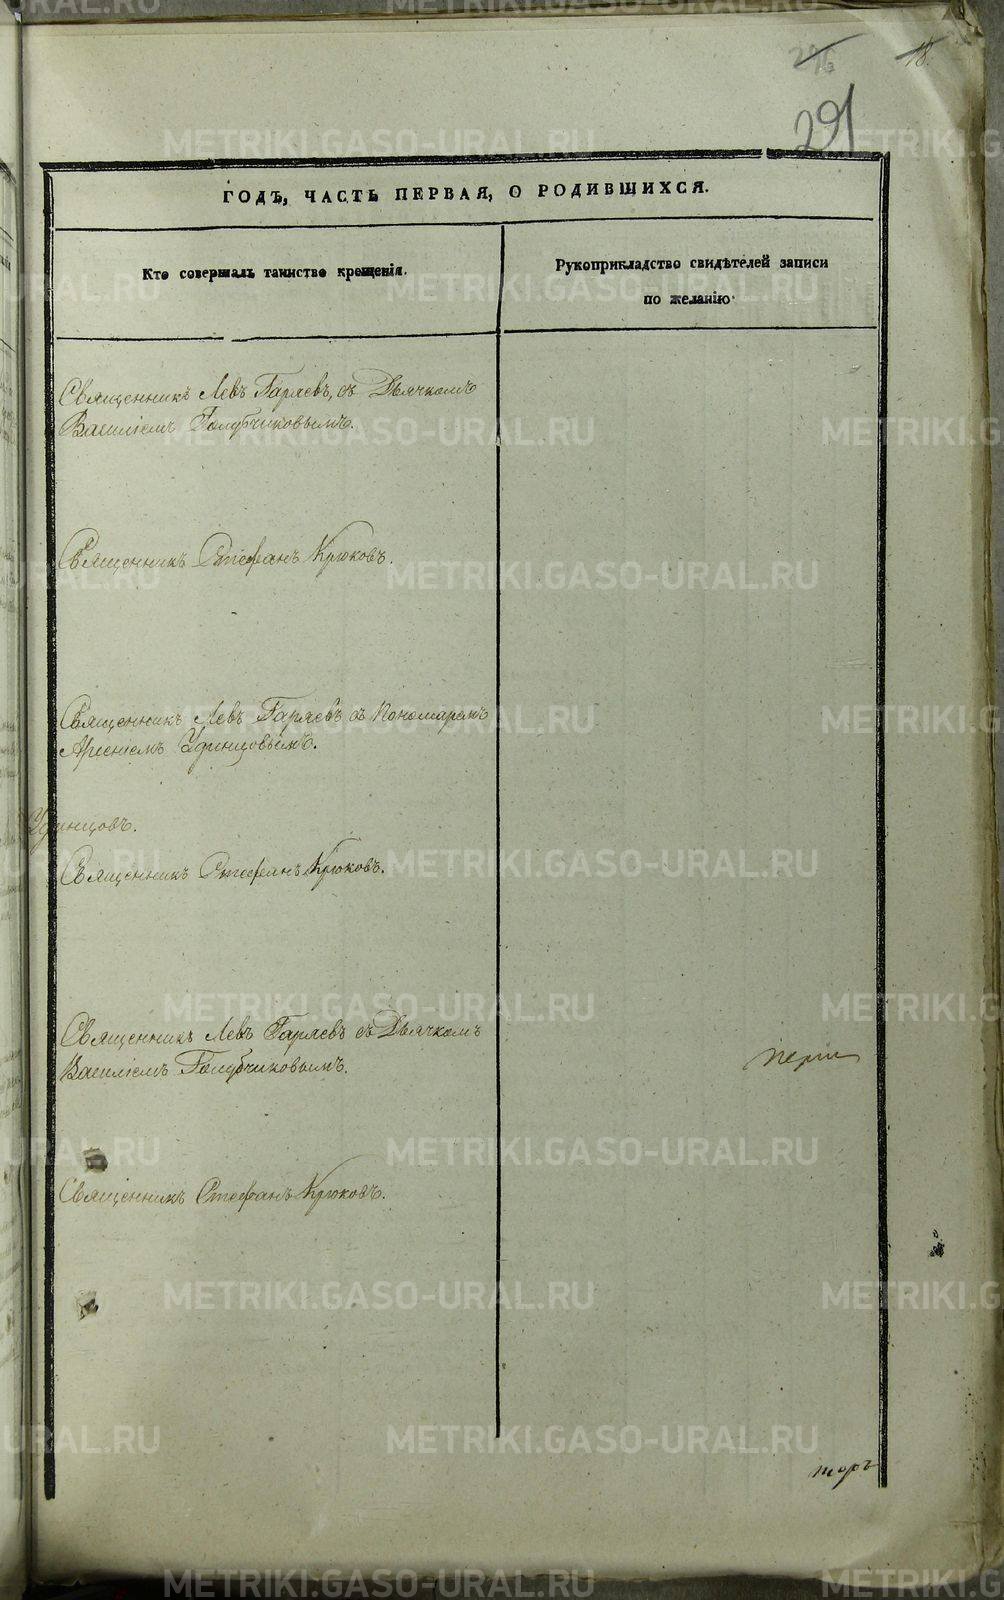 18.
291
ГОДЪ, ЧАСТЬ ПЕРВАЯ, О РОДИВШИХСЯ.
Кто совершалъ таинство крещенія.
Рукоприкладство свидѣтелей записи
по желанію
Священникъ Левъ Гаряевъ, съ Дьячкомъ
Василіемъ Голубчиковымъ.
Священникъ Стефанъ Крюковъ.
Священникъ Левъ Гаряевъ съ Пономаремъ
Арсеніемъ Удинцовымъ.
Удинцовъ.
Священникъ Стефанъ Крюковъ.
Священникъ Левъ Гаряевъ съ Дьячкомъ
Василіемъ Голубчиковымъ.
Священникъ Стефанъ Крюковъ.
торъ
METRIKI.GASO-URAL.RU